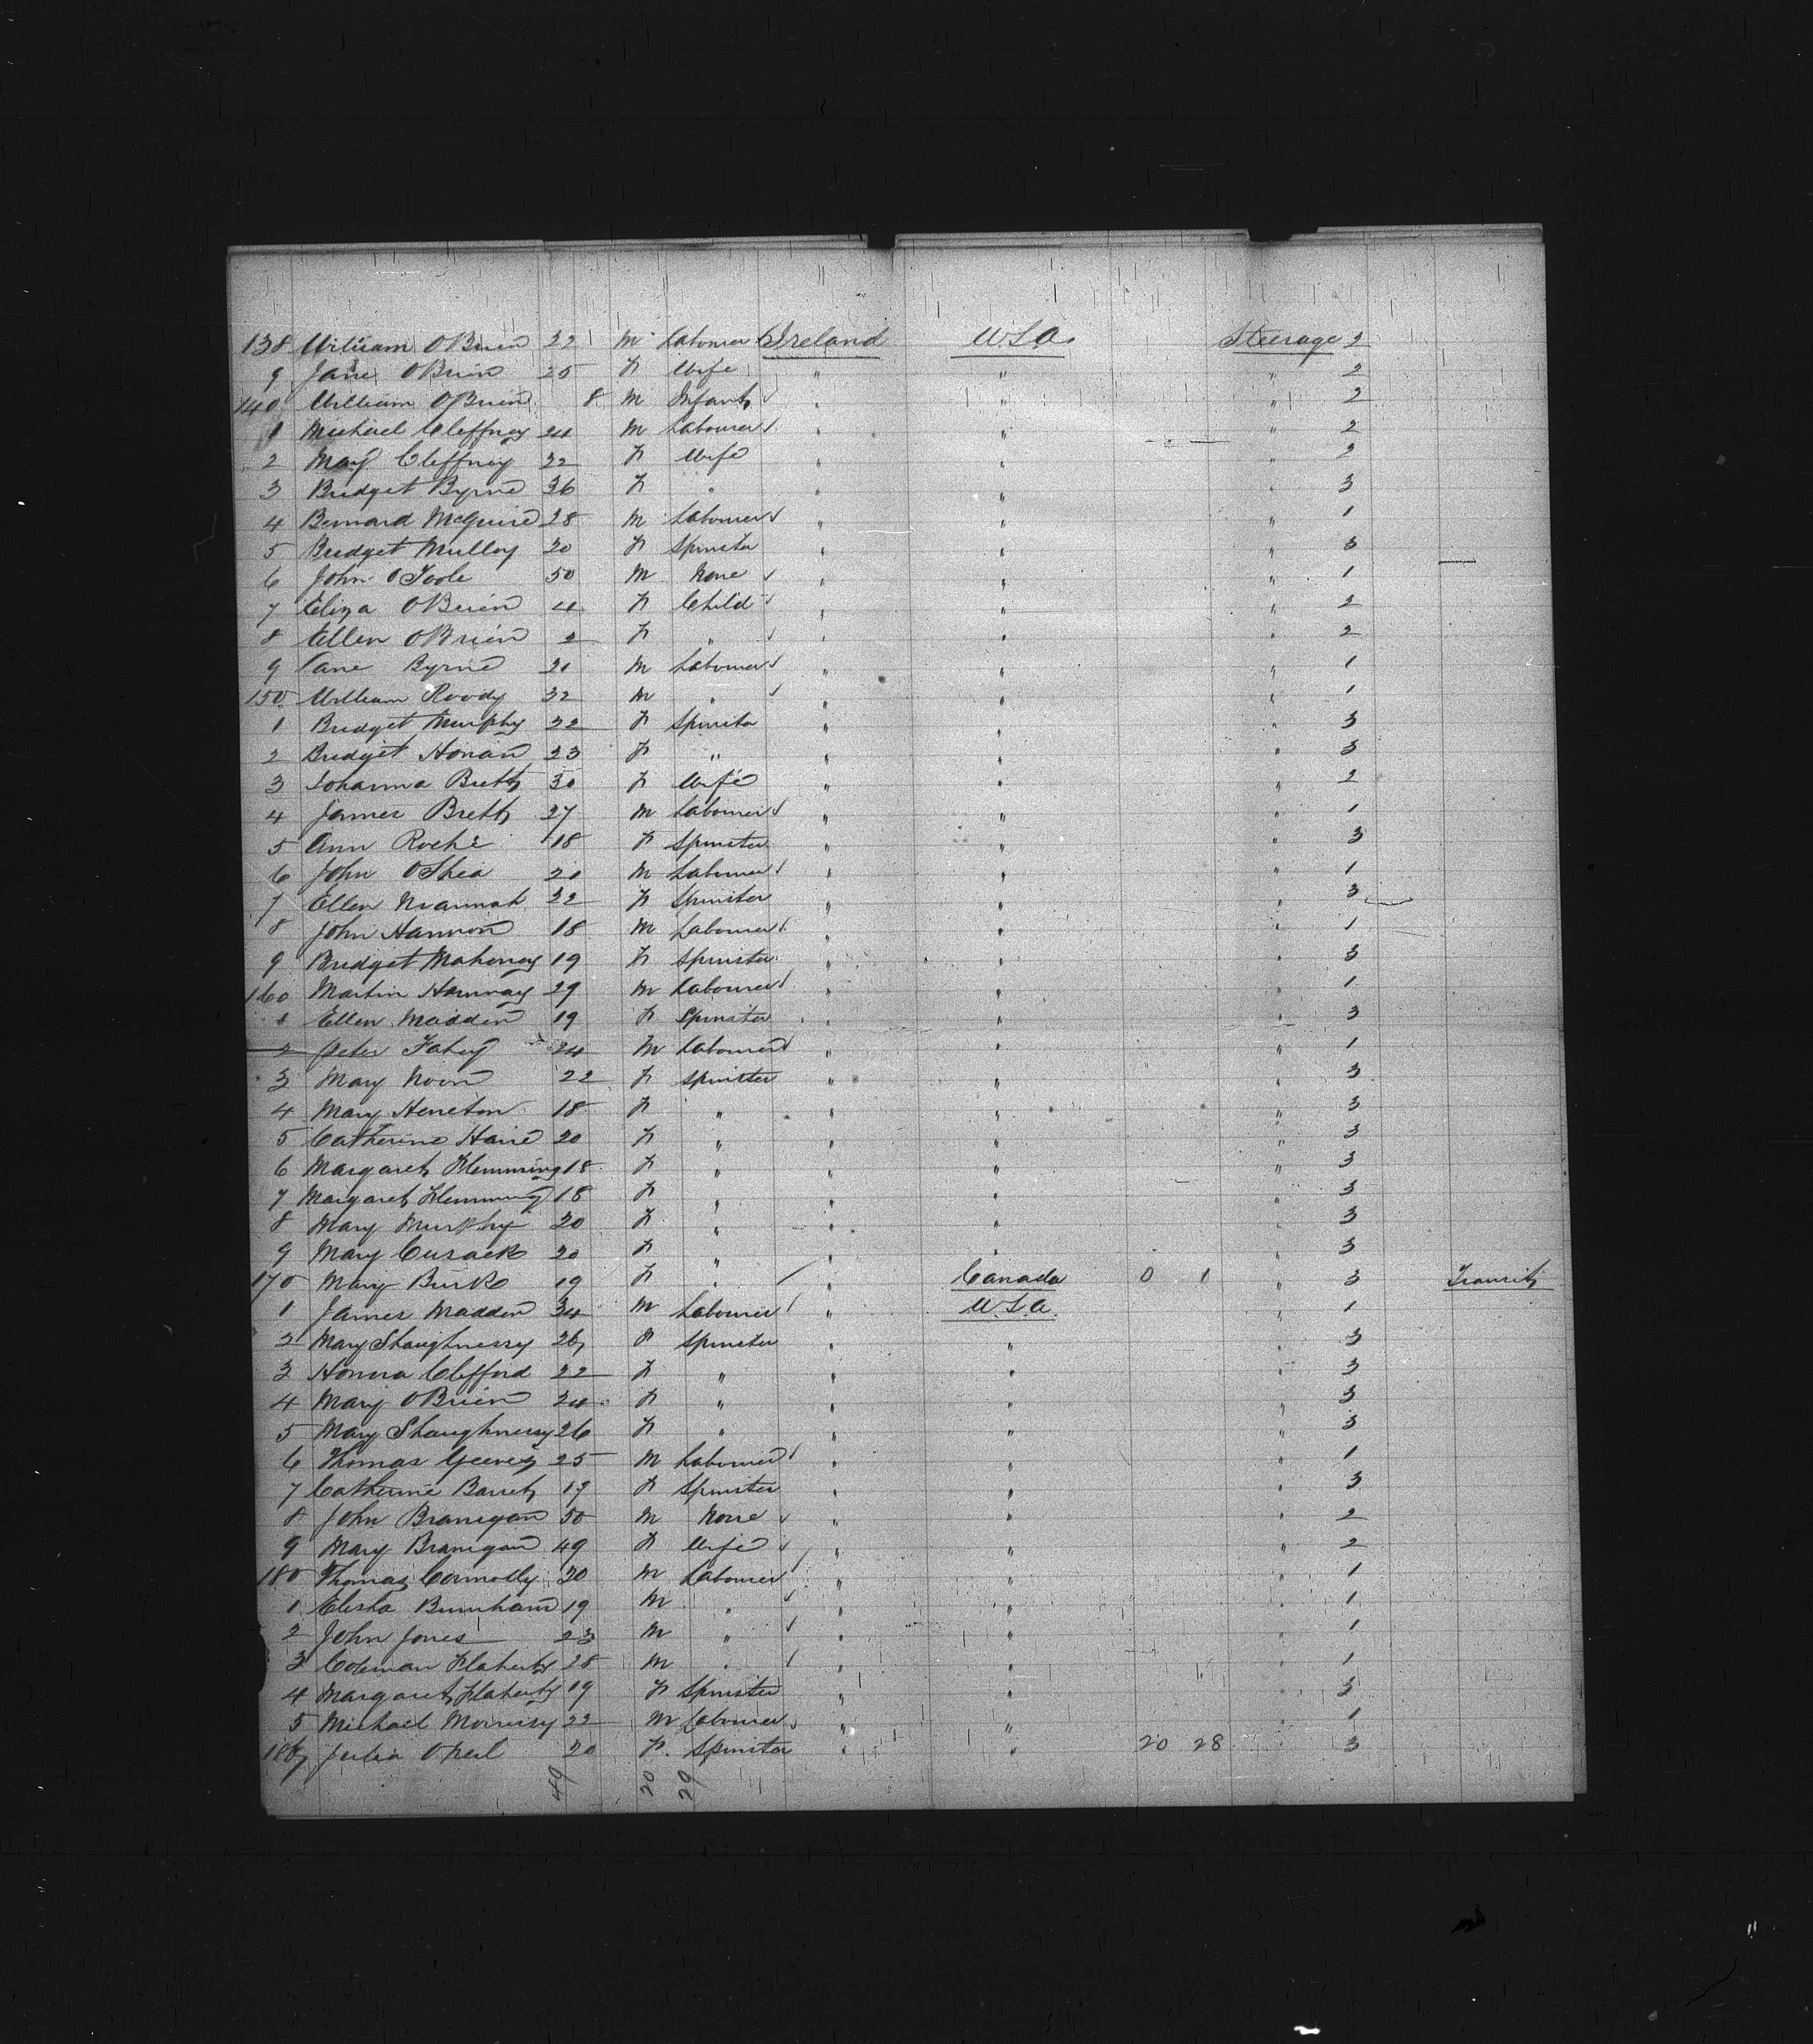 138 William OBrien 22 M Labourer Ireland USA Steerage 2
9 Jane OBrien 25 F Wife " " " 2
140 William OBrien 8 M Infant " " " 2
1 Michael Cleffney 24 M Labourer " " " 2
2 Mary Cleffney 22 F Wife " " " 2
3 Bridget Byrne 36 F " " " " 3
4 Bernard McGuire 28 M Labourer " " " 1
5 Bridget Mulloy 20 F Spinster " " " 3
6 John OToole 50 M None " " " 1
7 Eliza OBrien 4 F Child " " " 2
8 Ellen OBrien 2 F " " " " 2
9 Byrne 21 M Labourer " " " 1
150 William Roody 32 M " " " " 1
1 Bridget Murphy 22 F Spinster " " " 3
2 Bridget Honan 23 F " " " " 3
3 Johanna Brett 30 F Wife " " " 2
4 James Brett 27 M Labourer " " " 1
5 Ann Roche 18 F Spinster " " " 3
6 John OShea 20 M Labourer " " " 1
7 Ellen 22 F Spinster " " " 3
8 John Hannon 18 M Labourer " " " 1
9 Bridget Mahoney 19 F Spinster " " " 3
160 Martin Hanway 29 M Labourer " " " 1
1 Ellen Madden 19 F Spinster " " " 3
2 Peter Fahey 24 M Labourer " " " 1
3 Mary Noon 22 F Spinster " " " 3
4 Mary Heneton 18 F " " " " 3
5 Catherine Haire 20 F " " " " 3
6 Margaret Flemming 18 F " " " " 3
7 Margaret Flemming 18 F " " " " 3
8 Mary Murphy 20 F " " " " 3
9 Mary Cusack 20 F " " " " 3
170 Mary Burke 19 F " Canada 0 1 " 3 Transit
1 James Madden 34 M Labourer " U.S.A. " 1
2 Mary Shaughnessy 26 F Spinster " " " 3
3 Honora Clifford 22 F " " " " 3
4 Mary OBrien 24 F " " " " 3
5 Mary Shaughnessy 26 F " " " " 3
6 Thomas 25 M Labourer " " " 1
7 Catherine Barrett 19 F Spinster " " " 3
8 John Branigan 50 M None " " " 2
9 Mary Branigan 49 F Wife " " " 2
180 Thomas Connolly 30 M Labourer " " " 1
1 Elisha Burnham 19 M " " " " 1
2 John Jones 23 M " " " " 1
3 Coleman Flaherty 28 M " " " " 1
4 Margaret Flaherty 19 F Spinster " " " 3
5 Michael Morrissy 22 M Labourer " " " 1
186 Julia ONeil 20 F Spinster " " 20 28 3
49 20 29